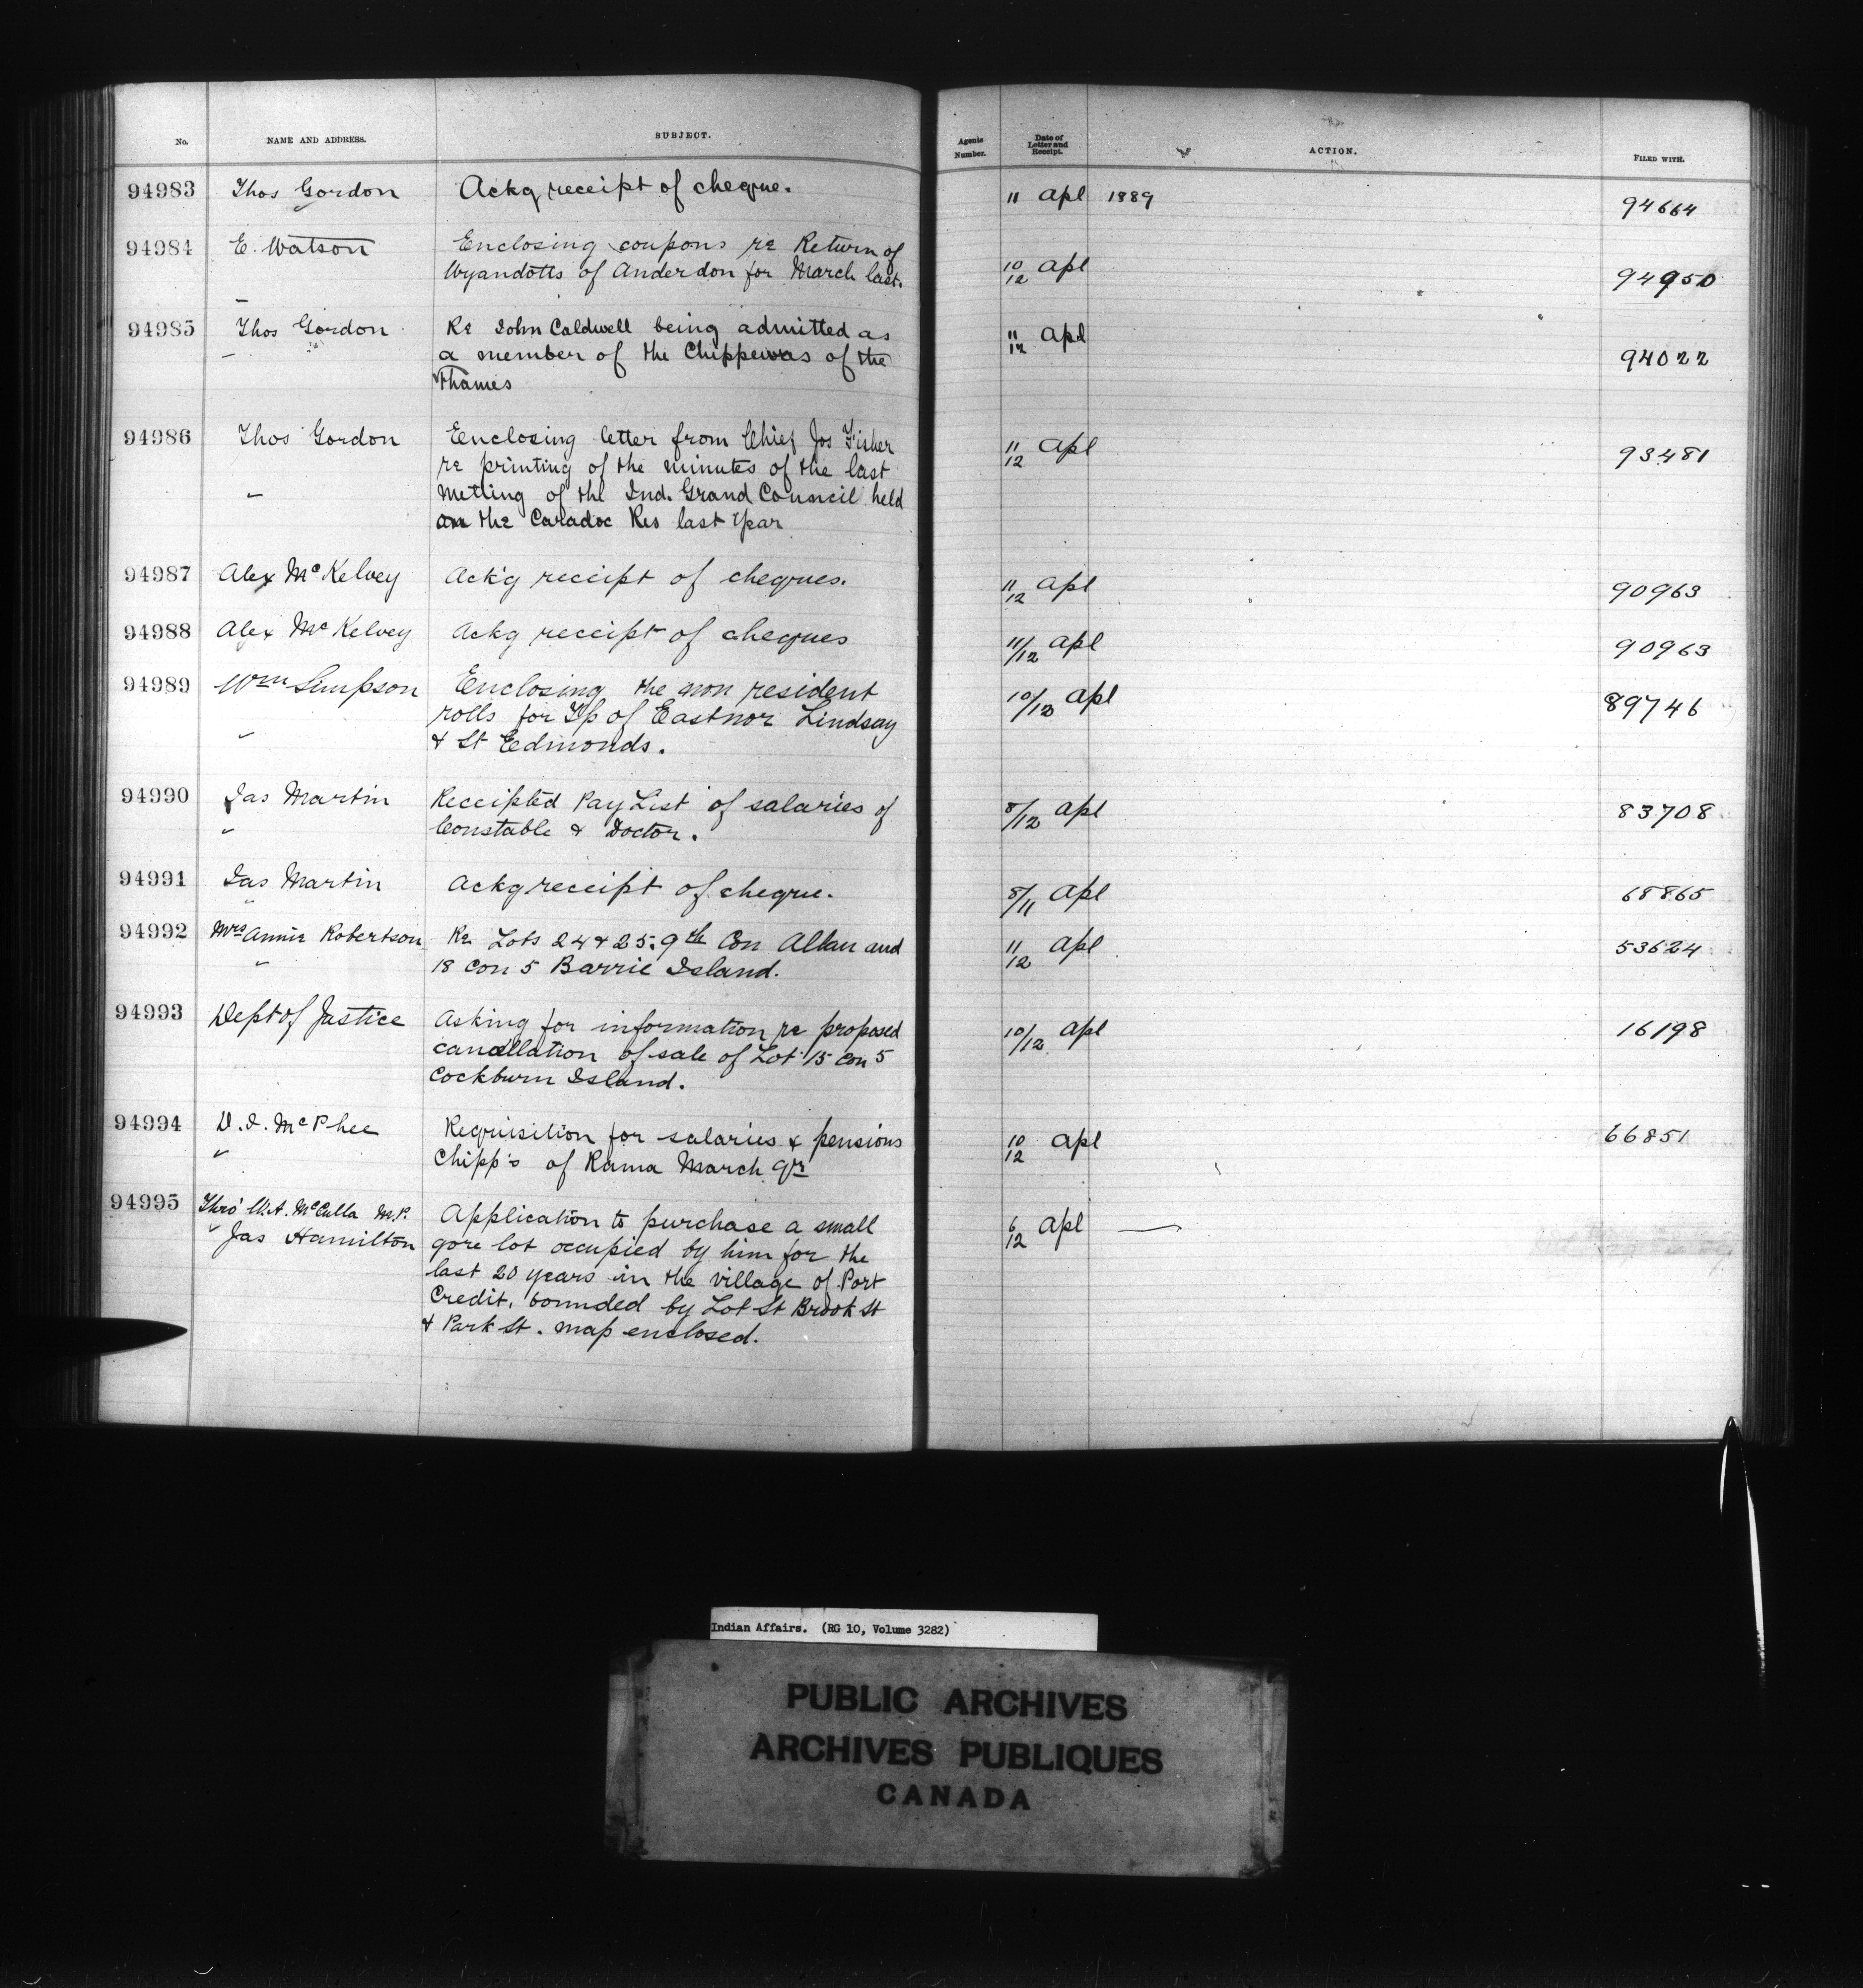 No. NAME AND ADDRESS. SUBJECT. Agents Number. Date of Letter and Receipt. ACTION. FILED WITH.
94983 Thos Gordon Ackg receipt of cheque. 11 Apl 1889 94664
94984 E. Watson Enclosing coupons re Return of 10/12 Apl 94950
Wyandotts of Anderdon for March last.
94985 Thos Gordon Re John Caldwell being admitted as 11/12 Apl 94022
a member of the Chippewas of the
Thames
94986 Thos Gordon Eenclosing letter from Chief Jos Fisher 11/12 Apl 93481
re printing of the minutes of the last
meeting of the Ind. Grand Council held
on the Caradoc Res last year
94987 Alex McKelvey Ack'g receipt of cheques. 11/12 Apl 90963
94988 Alex McKelvey Ackg receipt of cheques 11/12 Apl 90963
94989 Wm Simpson Enclosing the non resident 10/12 Apl 89746
rolls for Tp of Eastnor Lindsay
& St Edmonds.
94990 Jas Martin Receipted Pay List of salaries of 8/12 Apl 83708
Constable & Doctor.
94991 Jas Martin Ackg receipt of cheque. 8/11 Apl 68865
94992 Mrs Annie Robertson Re Lots 24 & 25. 9th Con Allan and 11/12 Apl 53624
18 Con 5 Barrie Island.
94993 Dept of Justice Asking for information re proposed 10/12 Apl 16198
cancellation of sale of Lot 15 Con 5
Cockburn Island.
94994 D. J. McPhee Requisition for salaries & pensions 10/12 Apl 66851
Chipp's of Rama March qr
94995 Thro' W.A. McCulla M.P. Application to purchase a small 6/12 Apl —
" Jas Hamilton gore lot occupied by him for the
last 20 years in the village of Port
Credit, bounded by Lot St Brook St
& Park St. map enclosed.
Indian Affairs. (RG 10, Volume 3282)
PUBLIC ARCHIVES
ARCHIVES PUBLIQUES
CANADA